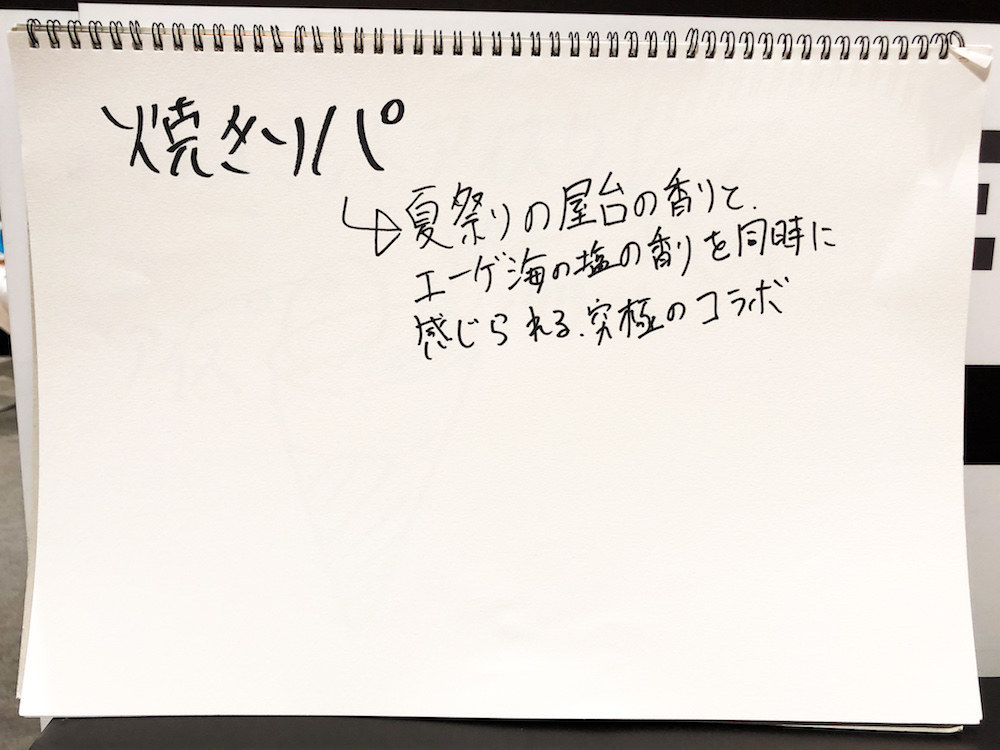 焼きリパ
夏祭りの屋台の香りと、
エーゲ海の塩の香りを同時に
感じられる、究極のコラボ